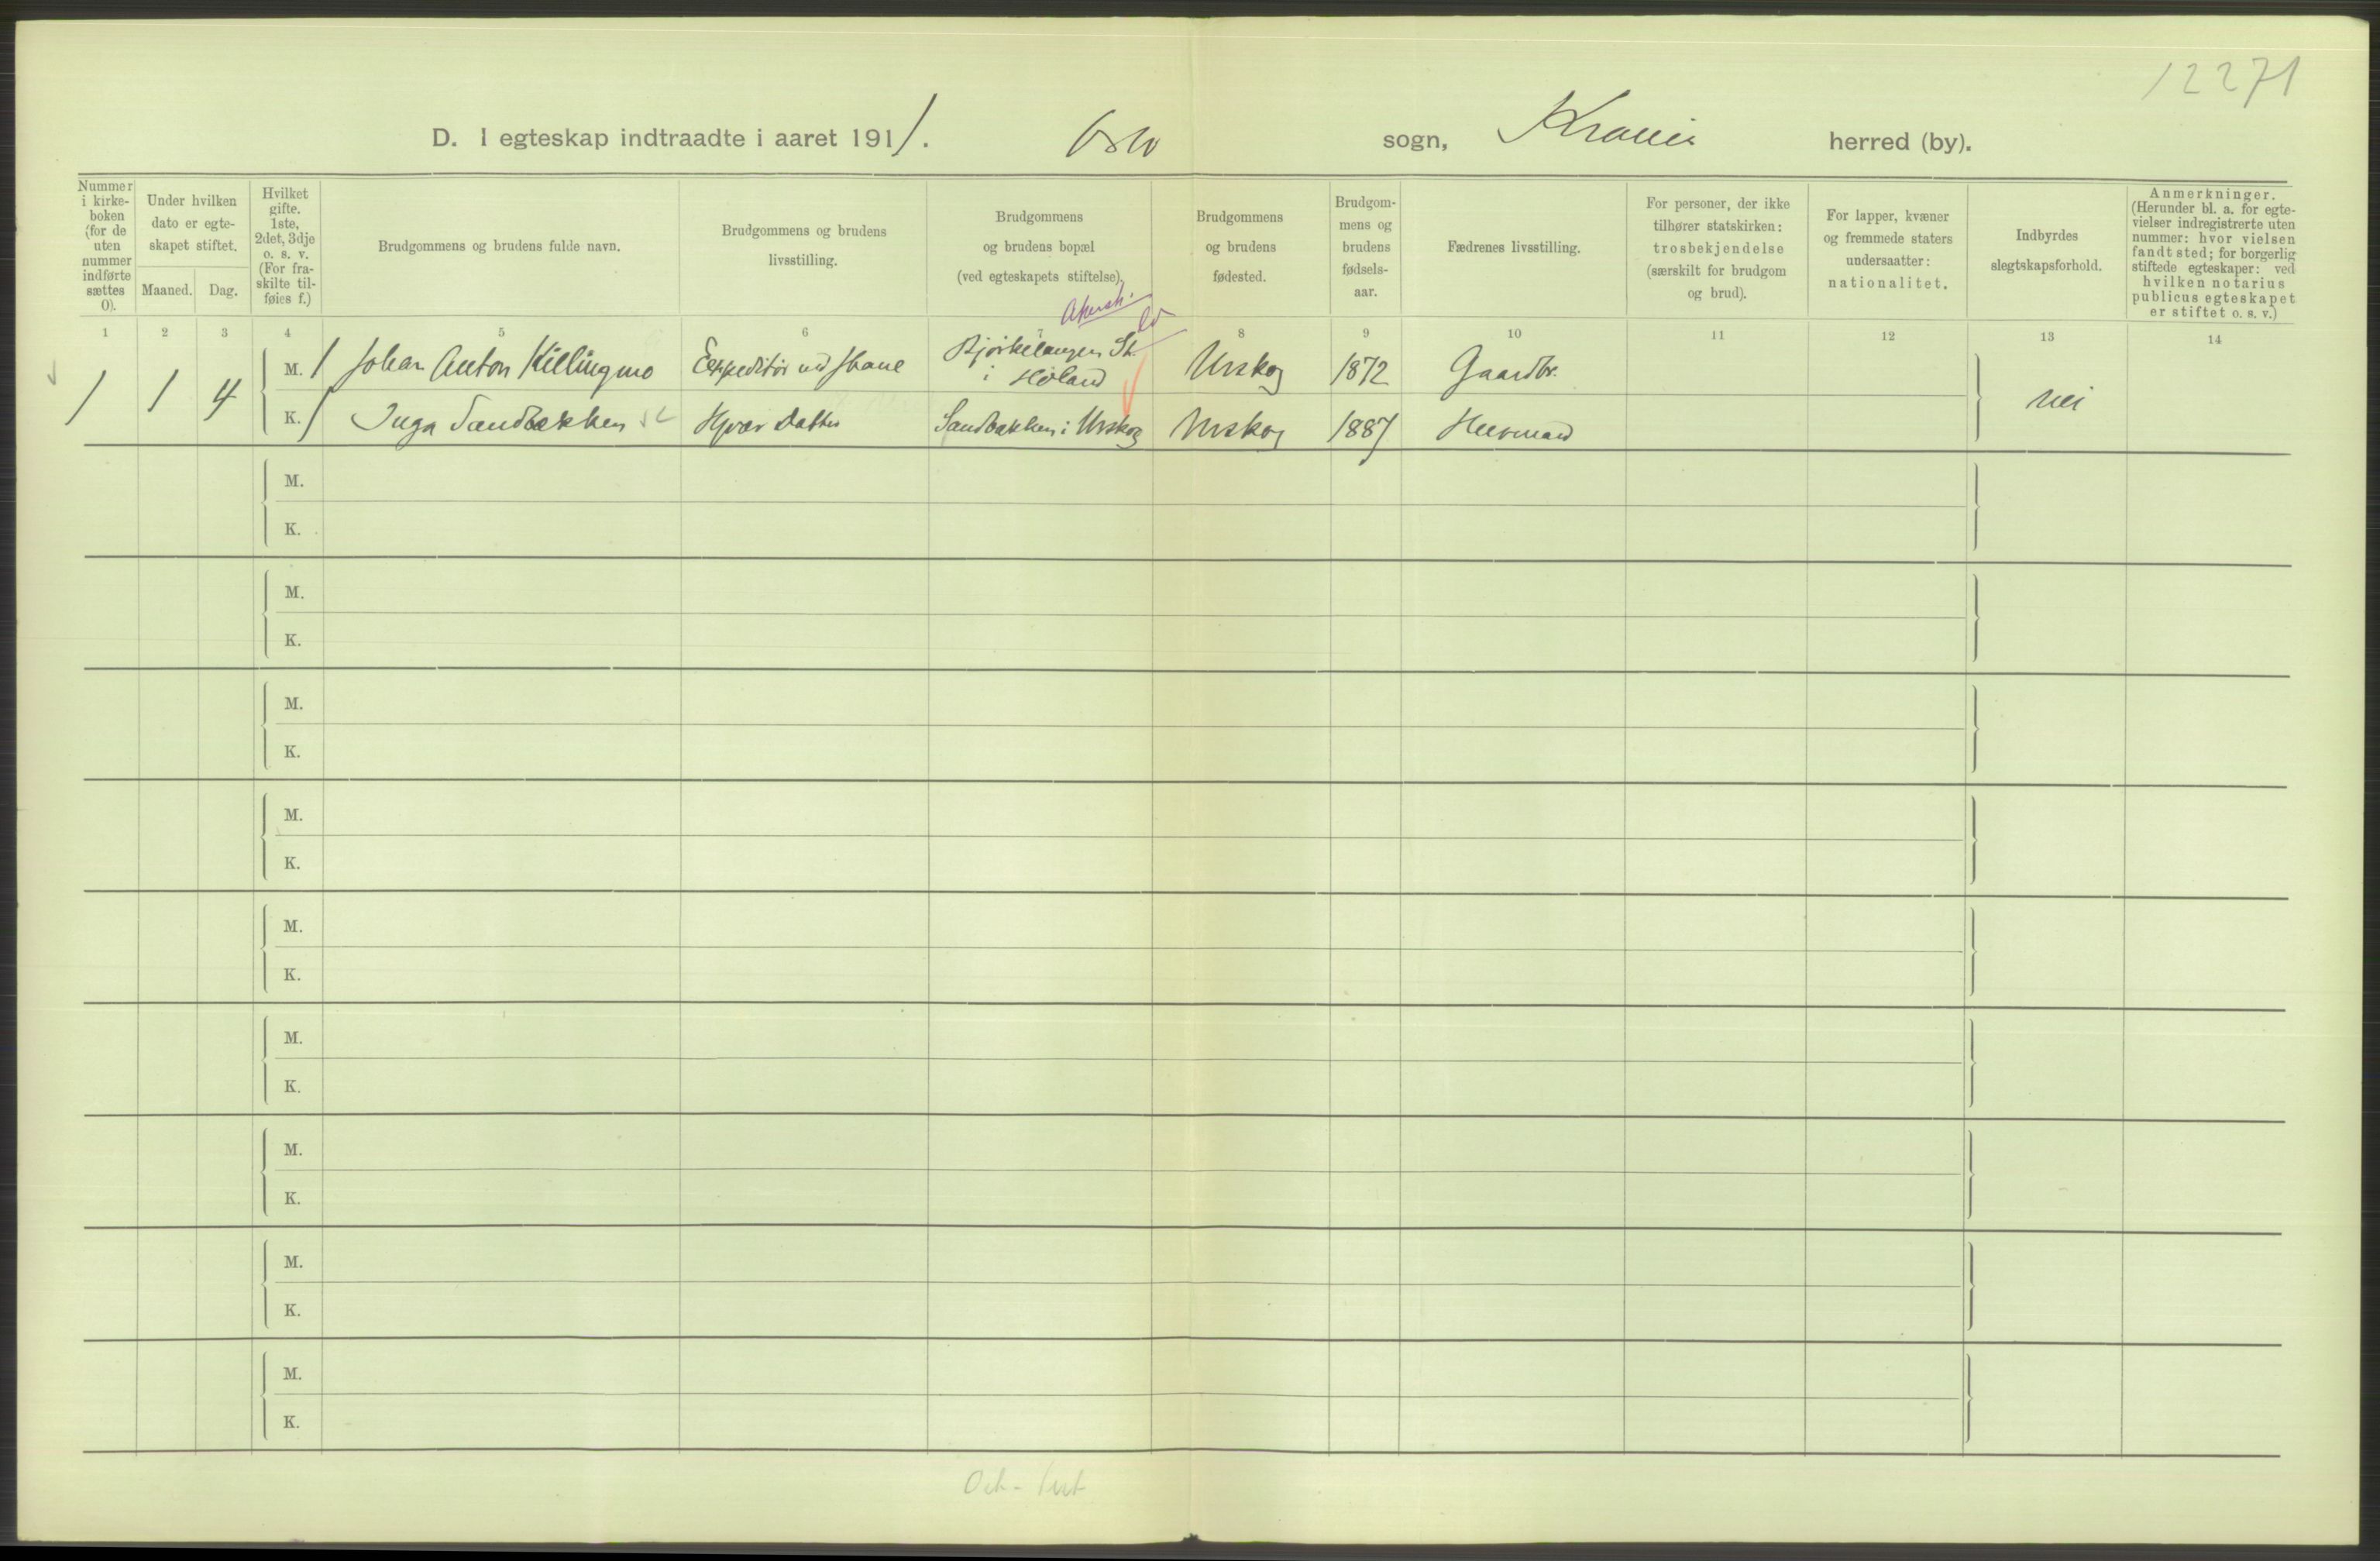 12271
D. I egteskap indtraadte i aaret 1911. Oslo sogn, Krania herred (by).
Nummer i kirke-boken (for de uten nummer indførte sættes 0).
Under hvilken dato er egte-skapet stiftet.
Maaned. Dag.
Hvilket gifte. 1ste, 2det, 3dje o. s. v. (For fra-skilte til-føies f.)
Brudgommens og brudens fulde navn.
Brudgommens og brudens livsstilling.
Brudgommens og brudens bopæl (ved egteskapets stiftelse).
Brudgommens og brudens fødested.
Brudgom-mens og brudens fødsels-aar.
Fædrenes livsstilling.
For personer, der ikke tilhører statskirken: trosbekjendelse (særskilt for brudgom og brud).
For lapper, kvæner og fremmede staters undersaatter: nationalitet.
Indbyrdes slegtskapsforhold.
Anmerkninger. (Herunder bl. a. for egte-vielser indregistrerte uten nummer: hvor vielsen fandt sted; for borgerlig stiftede egteskaper: ved hvilken notarius publicus egteskapet er stiftet o. s. v.)
1 2 3 4 5 6 7 8 9 10 11 12 13 14
Akersh.
1 1 4 M. 1 Johan Anton Killingmo Expeditør ved Bane Bjørkelangen St. i Høland Urskog 1872 Gaardbr. nei
K. 1 Inga Sandbækken Hjvær Datter Sandbækken i Urskog Urskog 1887
M.
K.
M.
K.
M.
K.
M.
K.
M.
K.
M.
K.
M.
K.
M.
K.
M.
K.